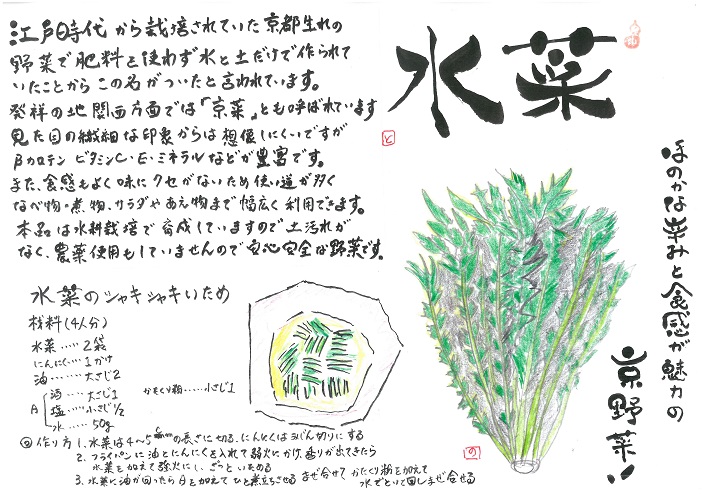 水菜
ほのかな辛みと食感が魅力の
京野菜!!
江戸時代から栽培されていた京都生れの
野菜で肥料を使わず水と土だけで作られて
いたことからこの名がついたと言われています。
発祥の地関西方面では「京菜」とも呼ばれています
見た目の繊細な印象からは想像しにくいですが
βカロテン ビタミンC・E・ミネラルなどが豊富です。
また、食感もよく味にクセがないため使い道が多く
なべ物・煮物、サラダやあえ物まで幅広く利用できます。
本品は水耕栽培で育成していますので土汚れが
なく、農薬使用もしていませんので安心安全な野菜です。
水菜のシャキシャキいため
材料(4人分)
水菜……2袋
にんにく……1かけ
油……大さじ2
A
酒……大さじ1
塩……小さじ1/2
水……50g
かたくり粉……小さじ1
◎作り方 1、水菜は4〜5cmの長さに切る、にんにくはみじん切りにする
2、フライパンに油とにんにくを入れて弱火にかけ、香りが出てきたら
水菜を加えて強火にし、さっといためる
3、水菜に油が回ったらAを加えてひと煮立ちさせる まぜ合せて かたくり粉を加えて
水でといて回しまぜ合せる
と
の